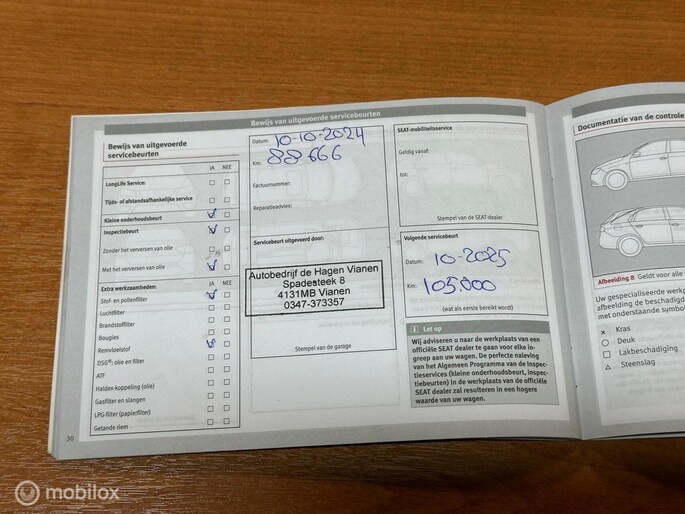 Bewijs van uitgevoerde servicebeurten
Bewijs van uitgevoerde
servicebeurten
JA NEE
LongLife Service:
Tijds- of afstandsafhankelijke service
Kleine onderhoudsbeurt
Inspectiebeurt
Zonder het verversen van olie
Met het verversen van olie
Extra werkzaamheden:
JA NEE
Stof- en pollenfilter
Luchtfilter
Brandstoffilter
Bougies
Remvloeistof
DSG®: olie en filter
ATF
Haldex-koppeling (olie)
Gasfilter en slangen
LPG-filter (papierfilter)
Getande riem
30
Datum: 10-10-2024
Km: 88666
Factuurnummer:
Reparatieadvies:
Servicebeurt uitgevoerd door:
Autobedrijf de Hagen Vianen
Spadesteek 8
4131MB Vianen
0347-373357
Stempel van de garage
SEAT-mobiliteitsservice
Geldig vanaf:
tot:
Stempel van de SEAT-dealer
Volgende servicebeurt
Datum: 10-2025
Km: 105000
(wat als eerste bereikt wordt)
Let op
Wij adviseren u naar de werkplaats van een
officiële SEAT dealer te gaan voor elke in-
greep aan uw wagen. De perfecte naleving
van het Algemeen Programma van de Inspec-
tieservices (kleine onderhoudsbeurt, inspec-
tiebeurten) in de werkplaats van de officiële
SEAT dealer zal resulteren in een hogere
waarde van uw wagen.
Documentatie van de controle
Afbeelding 8 Geldt voor alle
Uw gespecialiseerde werkp
afbeelding de beschadigd
met onderstaande symbol
× Kras
○ Deuk
□ Lakbeschadiging
△ Steenslag
mobilox